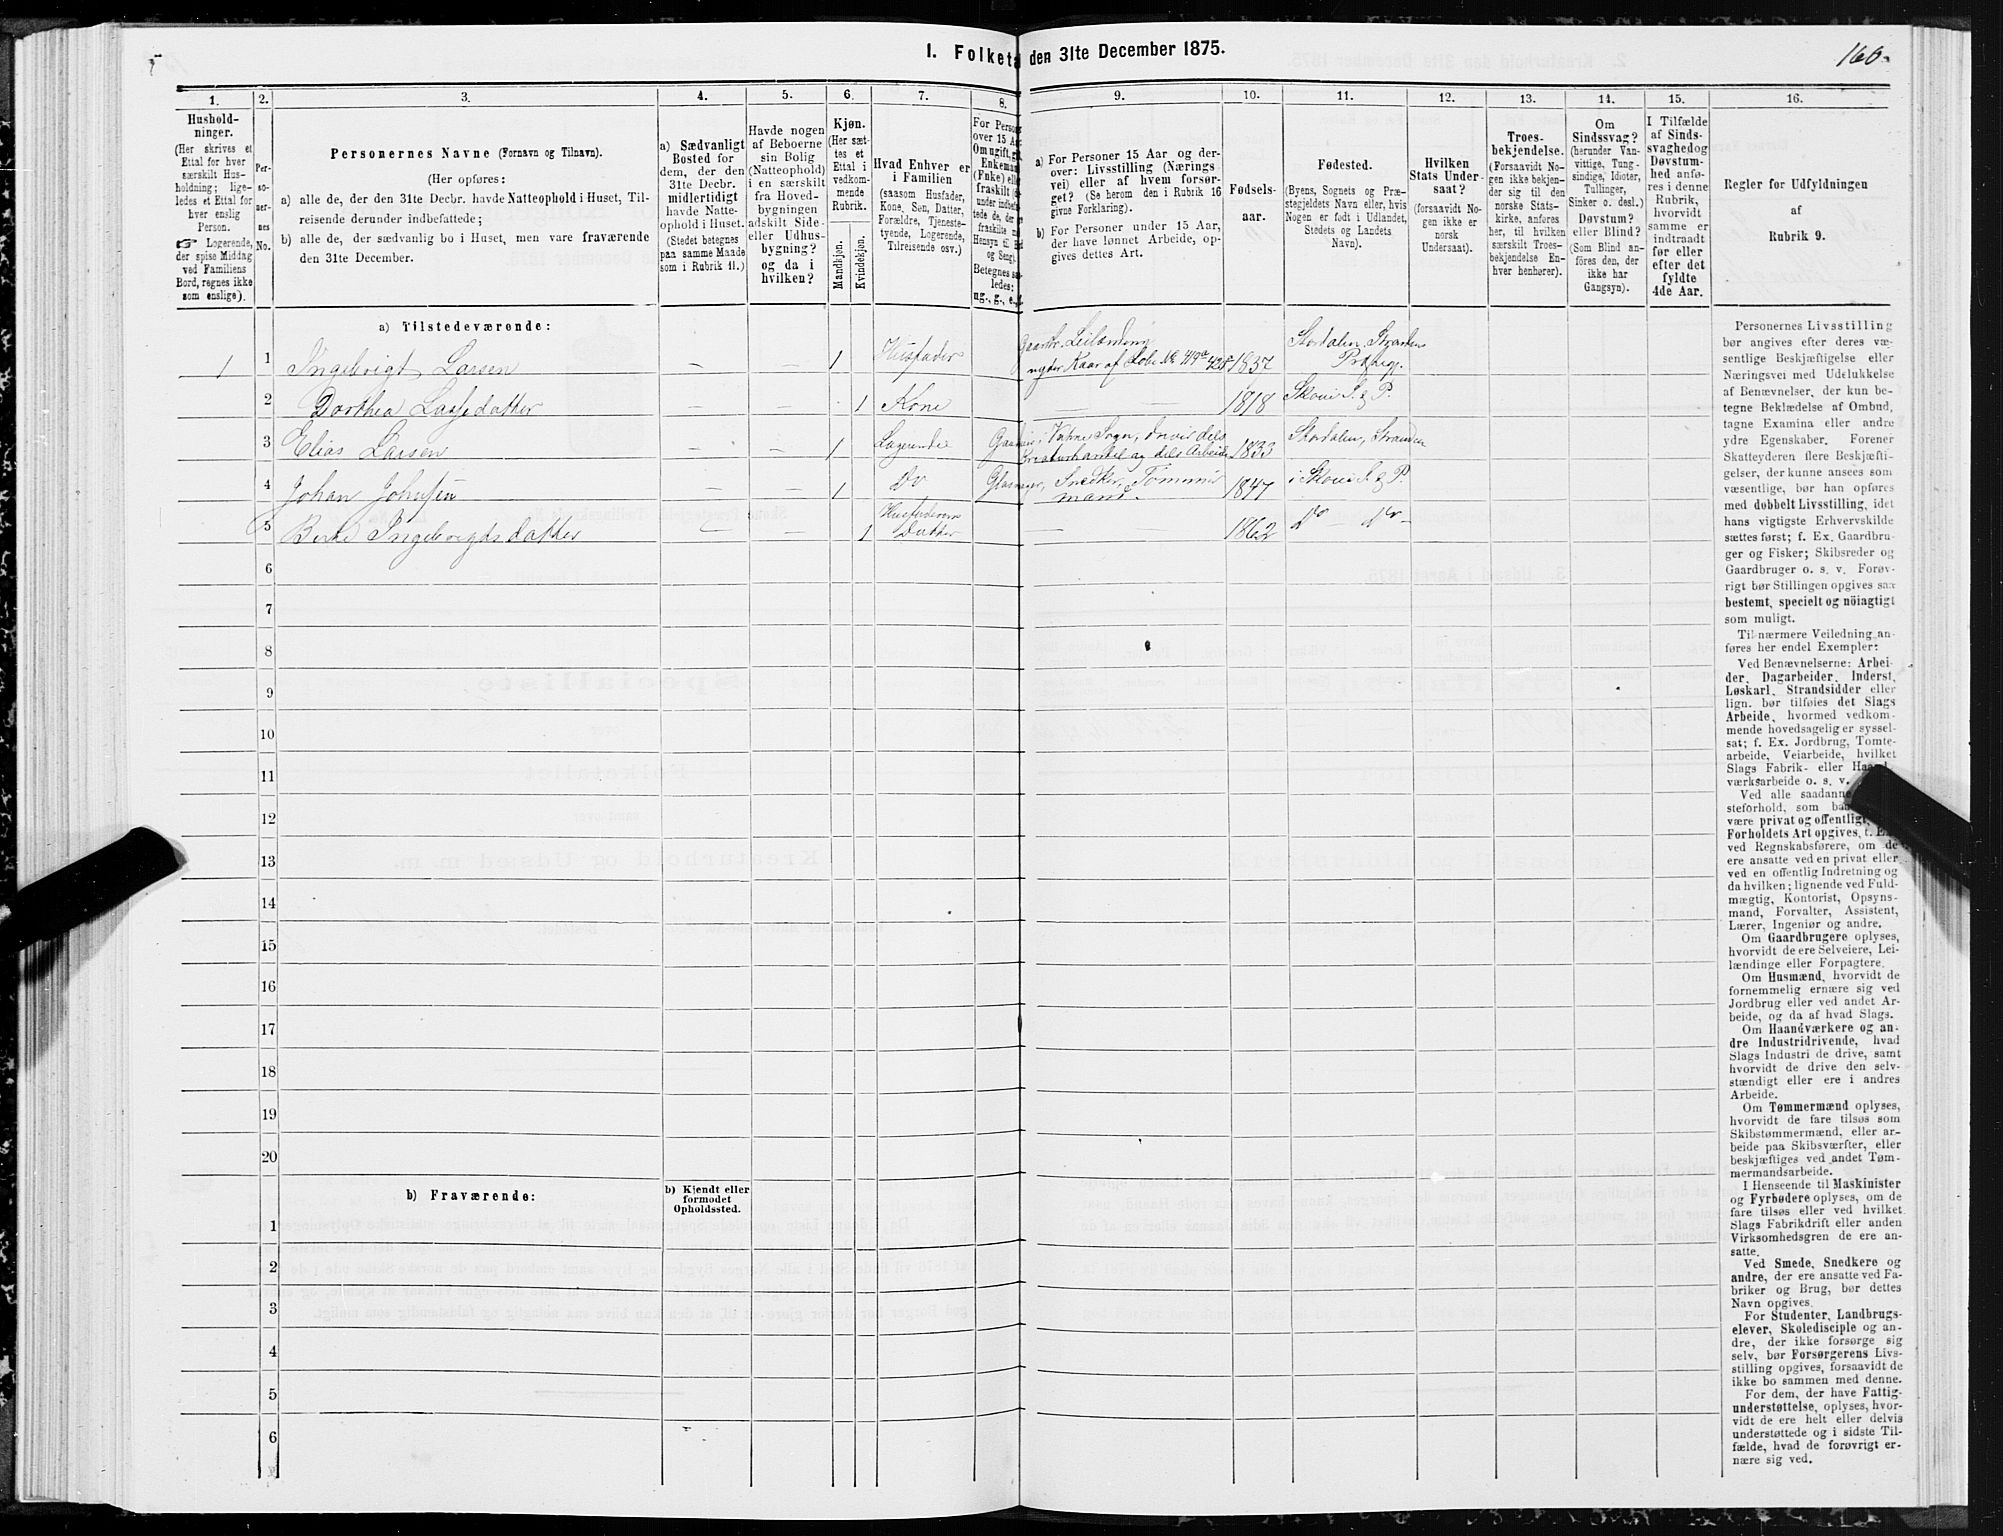 1. Folketa den 31te December 1875.
160.
1. 2. 3. 4. 5. 6. 7. 8. 9. 10. 11. 12. 13. 14. 15. 16.
Hushold-
ninger.
(Her skrives et
Ettal for hver
særskilt Hus-
holdning; lige-
ledes et Ettal for
hver enslig
Person.
☞ Logerende,
der spise Middag
ved Familiens
Bord, regnes ikke
som enslige).
Per-
so-
ner-
nes
No.
Personernes Navne (Fornavn og Tilnavn).
(Her opføres:
a) alle de, der den 31te Decbr. havde Natteophold i Huset, Til-
reisende derunder indbefattede;
b) alle de, der sædvanlig bo i Huset, men vare fraværende
den 31te December.
a) Sædvanligt
Bosted for
dem, der den
31te Decbr.
midlertidigt
havde Natte-
ophold i Huset.
(Stedet betegnes
paa samme Maade
som i Rubrik 11.)
Havde nogen
af Beboerne
sin Bolig
(Natteophold)
i en særskilt
fra Hoved-
bygningen
adskilt Side-
eller Udhus-
bygning?
og da i
hvilken?
Kjøn.
(Her sæt-
tes et
Ettal i
vedkom-
mende
Rubrik.
Mandkjøn.
Kvindekjøn.
Hvad Enhver er
i Familien
(saasom Husfader,
Kone, Søn, Datter,
Forældre, Tjeneste-
tyende, Logerende,
Tilreisende osv.)
For Person
over 15 Aa
Om ugift, g
Enkeman
(Fnke) el
fraskilt
under indbe
tede de, de
fraskilte
Hensyn til
og Seng).
Betegnes sa
ledes:
ug., g., e., f.
a) For Personer 15 Aar og der-
over: Livsstilling (Nærings
vei) eller af hvem forsør-
get? (Se herom den i Rubrik 16
givne Forklaring).
b) For Personer under 15 Aar,
der have lønnet Arbeide, op-
gives dettes Art.
Fødsels-
aar.
Fødested.
(Byens, Sognets og Præ-
stegjeldets Navn eller, hvis
Nogen er født i Udlandet,
Stedets og Landets
Navn).
Hvilken
Stats Under-
saat?
(forsaavidt No-
gen ikke er
norsk
Undersaat).
Troes-
bekjendelse.
(Forsaavidt No-
gen ikke bekjen-
der sig til den
norske Stats-
kirke, anføres
her, til hvilken
særskilt Troes-
bekjendelse En-
hver henhører).
Om
Sindssvag?
(herunder Van-
vittige, Tung-
sindige, Idioter,
Tullinger,
Sinker o. desl.)
Døvstum?
eller Blind?
(Som Blind an-
føres den, der
ikke har
Gangsyn).
I Tilfælde
af Sinds-
svaghed og
Døvstum-
hed anfø-
res i denne
Rubrik,
hvorvidt
samme er
indtraadt
før eller
efter det
fyldte
4de Aar.
Regler for Udfyldningen
af
Rubrik 9.
a) Tilstedeværende:
1 1 Ingebrigt Larsen – – 1 Husfader Gaardbr. Leilænding nyder Kaar af Løbe No 419a 1837 Stordalen, Stranden Præstegj.
2 Dorthea Lassedatter – – 1 Kone – – 1818 Skoue S. & P.
3 Elias Larsen – – 1 Logerende 1833 Stordalen, Stranden
4 Johan Johnsen – – 1 Do Snedker, Tømmermand 1847 i Skoue S. & P.
5 Ingebrigtsdatter – – 1 Husfaderens Datter – – 1862 do – do –
6
7
8
9
10
11
12
13
14
15
16
17
18
19
20
b) Fraværende:
b) Kjendt eller
formodet
Opholdssted.
1
2
3
4
5
6
Personernes Livsstilling
bør angives efter deres væ-
sentlige Beskjæftigelse eller
Næringsvei med Udelukkelse
af Benævnelser, der kun be-
tegne Beklædelse af Ombud,
tagne Examina eller andre
ydre Egenskaber. Forener
Skatteyderen flere Beskjæfti-
gelser, der kunne ansees som
væsentlige, bør han opføres
med dobbelt Livsstilling, idet
hans vigtigste Erhvervskilde
sættes først; f. Ex. Gaardbru-
ger og Fisker; Skibsreder og
Gaardbruger o. s. v. Forøv-
rigt bør Stillingen opgives saa
bestemt, specielt og nöiagtigt
som muligt.
Til nærmere Veiledning an-
føres her endel Exempler:
Ved Benævnelserne: Arbei-
der, Dagarbeider, Inderst,
Løskarl, Strandsidder eller
lign. bør tilføies det Slags
Arbeide, hvormed vedkom-
mende hovedsagelig er syssel-
sat; f. Ex. Jordbrug, Tomte-
arbeide, Veiarbeide, hvilket
Slags Fabrik- eller Haand-
værksarbeide o. s. v.
Ved alle saadanne
steforhold, som
være privat og offentligt,
Forholdets Art opgives, f. Ex.
ved Regnskabsførere, om de
ere ansatte ved en privat eller
ved en offentlig Indretning og
da hvilken; lignende ved Fuld-
mægtig, Kontorist, Opsyns-
mand, Forvalter, Assistent,
Lærer, Ingeniør og andre.
Om Gaardbrugere oplyses,
hvorvidt de ere Selveiere, Lei-
lændinge eller Forpagtere.
Om Husmænd, hvorvidt de
fornemmelig ernære sig ved
Jordbrug eller ved andet Ar-
beide, og da af hvad Slags.
Om Haandværkere og an-
dre Industridrivende, hvad
Slags Industri de drive, samt
hvorvidt de drive den selv-
stændigt eller ere i andres
Arbeide.
Om Tømmermænd oplyses,
hvorvidt de fare tilsøs som
Skibstømmermænd, eller ar-
beide paa Skibsværfter, eller
beskjæftiges ved andet Tøm-
mermandsarbeide.
I Henseende til Maskinister
og Fyrbødere oplyses, om de
fare tilsøs eller ved hvilket
Slags Fabrikdrift eller anden
Virksomhedsgren de ere an-
satte.
Ved Smede, Snedkere og
andre, der ere ansatte ved Fa-
briker og Brug, bør dettes
Navn opgives.
For Studenter, Landbrugs-
elever, Skoledisciple og an-
dre, der ikke forsørge sig
selv, bør Forsørgerens Livs-
stilling opgives, forsaavidt de
ikke bo sammen med denne.
For dem, der have Fattig-
understøttelse, oplyses, hvor-
vidt de ere helt eller delvis
understøttede og i sidste Til-
fælde, hvad de forøvrigt er-
nære sig ved.